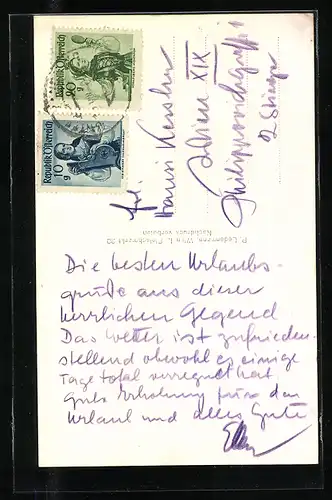 Republik Österreich
Republik Österreich
Frl.
Hansi Kessler
Wien XIX
Philippovichgasse
2 Stiege
P. Ledermann, Wien I, Fleischmarkt 20
Nachdruck verboten
Die besten Urlaubs-
grüße aus dieser
herrlichen Gegend
Das Wetter ist zufrieden-
stellend obwohl es einige
Tage total verregnet hat
Gute Erholung für den
Urlaub und alles Gute